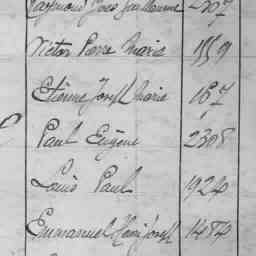 Raymond Yves Guillaume 2307
Victor Pierre Marie 1559
Etienne Joseph Marie 167
Paul Eugène 2305
Louis Paul 1924
Emmanuel Henri Joseph 1484